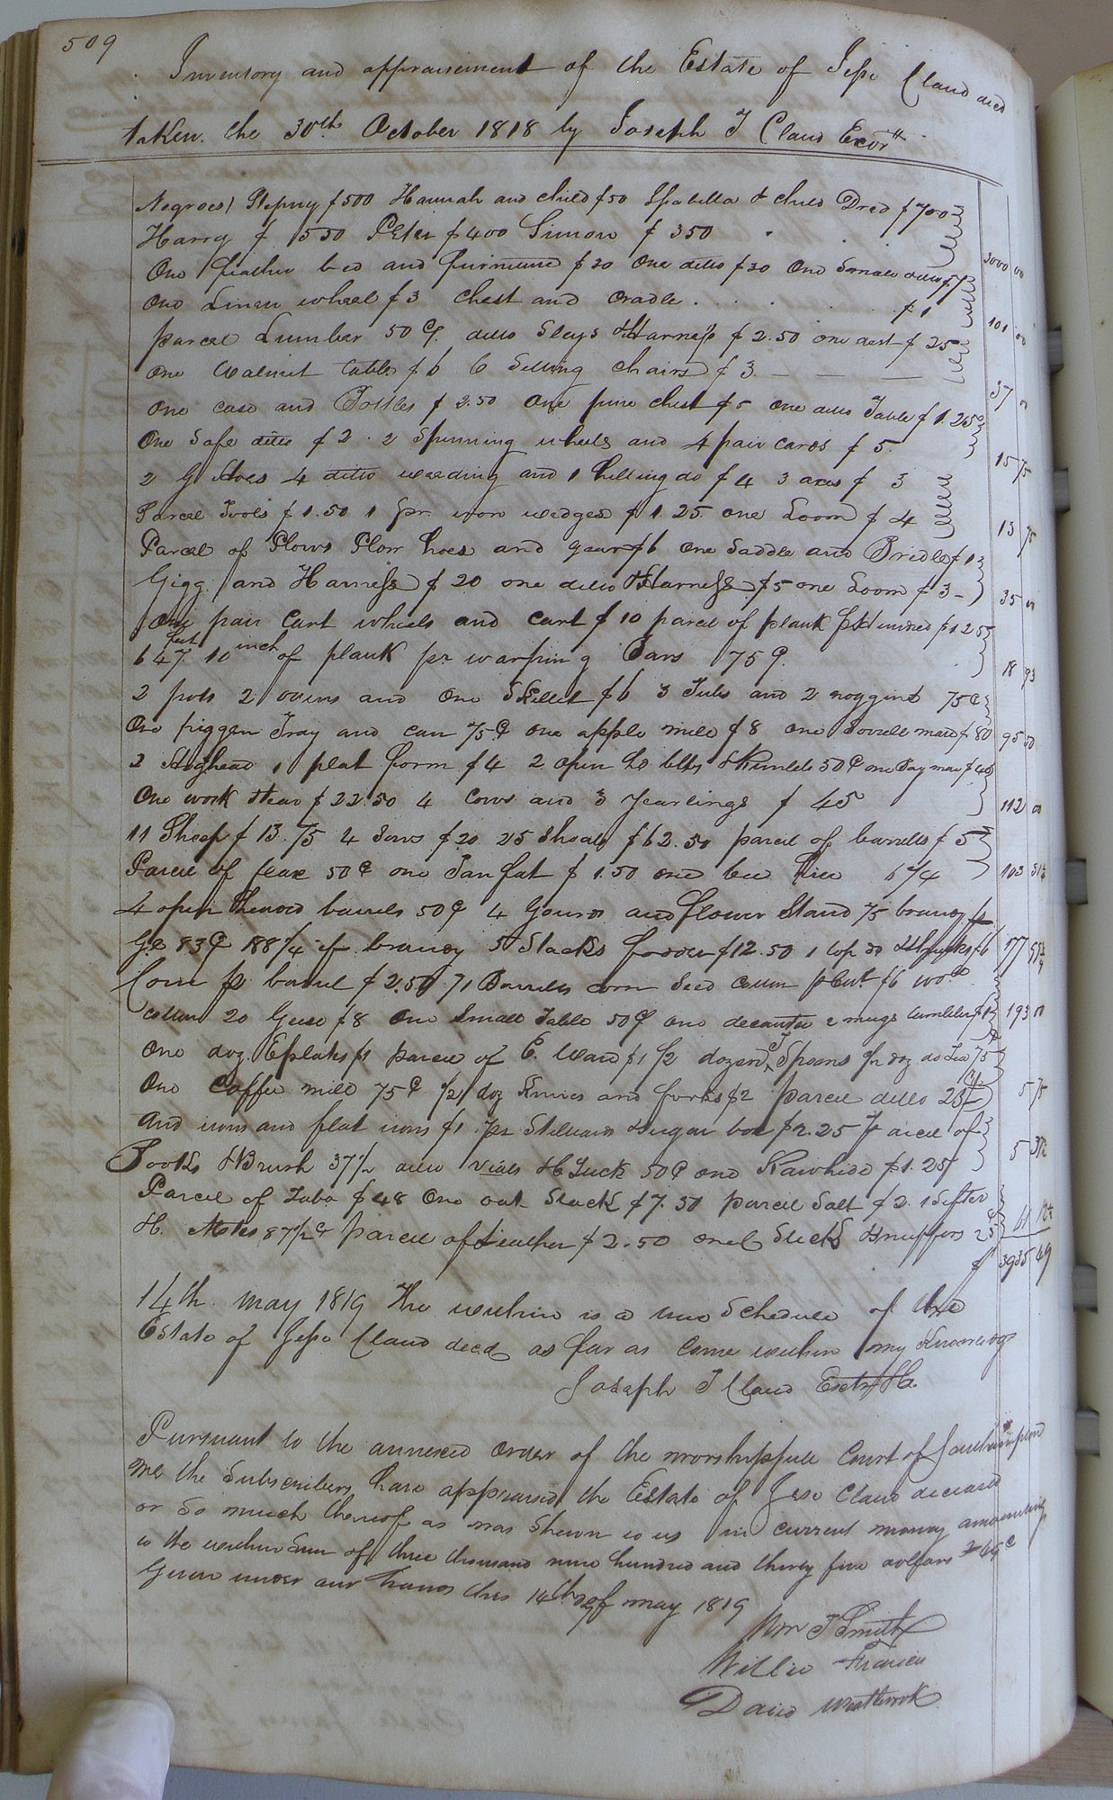 509
Inventory and appraisement of the Estate of Jesse Claud decd
taken the 30th October 1818 by Joseph T Claud Excor
Negroes / $500 Hannah and child $50 Isabella & child Dred $700
Harry $ 550 Peter $400 Simon $ 350
3000 00
One feather bed and furniture $30 one ditto $20 One
One Linen wheel $3 chest and cradle $1
101 00
parcel Lumber 50 C ditto Slays & Harness $2.50 one desk $ 25
One Walnut table $6 6 Setting chairs $3
37 00
One case and Bottles $ 2.50 One pine chest $5 one ditto Table $1.25
One Safe ditto $2. 2 Spinning wheels and 4 pair cards $5
15 75
2 G Hoes 4 ditto weeding and 1 hilling do $4 3 axes $ 3
Parcel Tools $1.50 1 pr iron wedges $1.25 one Loom $4
13 75
Parcel of Plows Plow hoes and gear $6 one Saddle and Bridle $1
Gigg and Harness $20 one ditto Harness $5 one Loom $3
35 00
One pair Cart wheels and cart $10 parcel of plank $1.25
647 feet 10 inch of plank pr warping Bars 75 C
18 93
2 pots 2 ovens and One Skillet $6 3 Tubs and 2 noggins 75 C
One piggen Tray and can 75 C one apple mill $8 one Sorrell mare $80
95 50
2 Hoghead 1 plat form $4 2 open 50 C one Bay mare $40
One work Stear $22.50 4 Cows and 3 yearlings $ 45
112 00
11 Sheep $13.75 4 Sows $20 25 Shoats $62.50 parcel of barrells $5
Parcel of flax 50 C one Tan fat $1.50 one bee Hive 6/4
103 31¼
4 open Headed barrels 50 C 4 Gourds and flower Stand 75 brandy pr
Gl 83 C 188¼ of brandy 5 Stacks fodder $12.50 1 top do & Shucks $6
177
Corn pr barrel $2.50 71 Barrels corn Seed cotton pr Cwt $6 100
193 00
cotton 20 Geese $8 One Small Table 50 C one decanter 2 mugs tumbler $1
One doz. E plates $1 parcel of E. Ware $1 ½ dozen Spoons ½ doz do Tea 75
One Coffee mill 75 C ½ doz Knives and forks $2 parcel ditto 25
5 75
And irons and flat irons $1 pr Stilliards & Sugar box $2.25 Parcel of
Books & Brush 37½ ditto vials H Luck 50 C one Rawhide $1.25
5 37½
Parcel of Tubs $48 One oat Stack $7.50 parcel Salt $2. 1 Sifter
H. 87½ C parcel of Leather $2.50 one Snuffers 25
61 12½
$ 3935 49
14th may 1819 The within is a true Schedule of the
Estate of Jesse Claud decd as far as Come within my Knowledge
Joseph T Claud
Pursuant to the annexed Order of the worshipfull Court of Southampton
We the Subscribers have appraised the Estate of Jesse Claud deceased
or So much thereof as was Shewn to us in current money amounting
to the within Sum of three thousand nine hundred and thirty five dollars
Given under our hands this 14th of may 1819
Wm T Smith
Willie Francis
David Westbrook